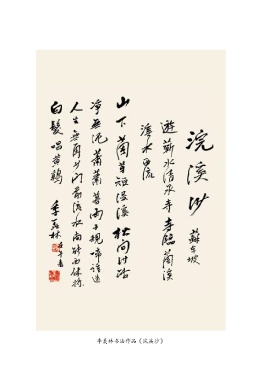 浣溪沙
蘇東坡
遊蘄水清泉寺寺臨蘭溪
溪水西流
山下蘭芽短浸溪松間沙路
淨無泥蕭蕭暮雨子規啼誰道
人生無再少門前流水尚能西休將
白髮唱黃鷄
季羨林
季羡林书法作品《浣溪沙》